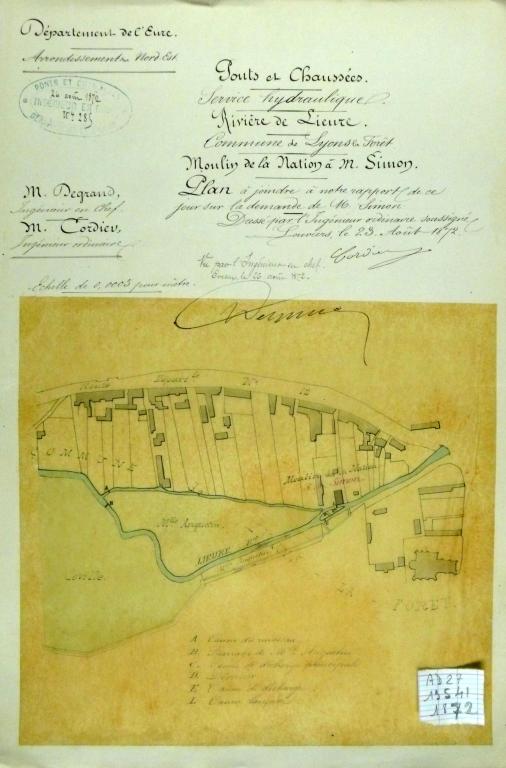 Département de l'Eure.
Arrondissement du Nord-Est
PONTS ET CHAUSSÉES
26 août 1872
Ponts et Chaussées.
Service hydraulique.
Rivière de Lieure.
Commune de Lyons la Forêt
Moulin de la Nation à M. Simon.
M. Degrand,
Ingénieur en Chef.
M. Cordier,
Ingénieur ordinaire
Plan à joindre à notre rapport de ce
jour sur la demande de M. Simon
Dressé par l'Ingénieur ordinaire soussigné,
Louviers, le 23 Août 1872.
Cordier
Vu par l'Ingénieur en chef.
Evreux le 26 août 1872.
Echelle de 0,0005 pour mètre.
Route Départle No
COMMUNE
Moulin de la Nation
Simon
Mlle Anquetin
LIEURE
Riv.
LA
FORET.
A
B Barrage de Mlle Anquetin
C Vanne de décharge principale
D Déversoir
E Vanne de décharge
L Vanne
AD 27
1872